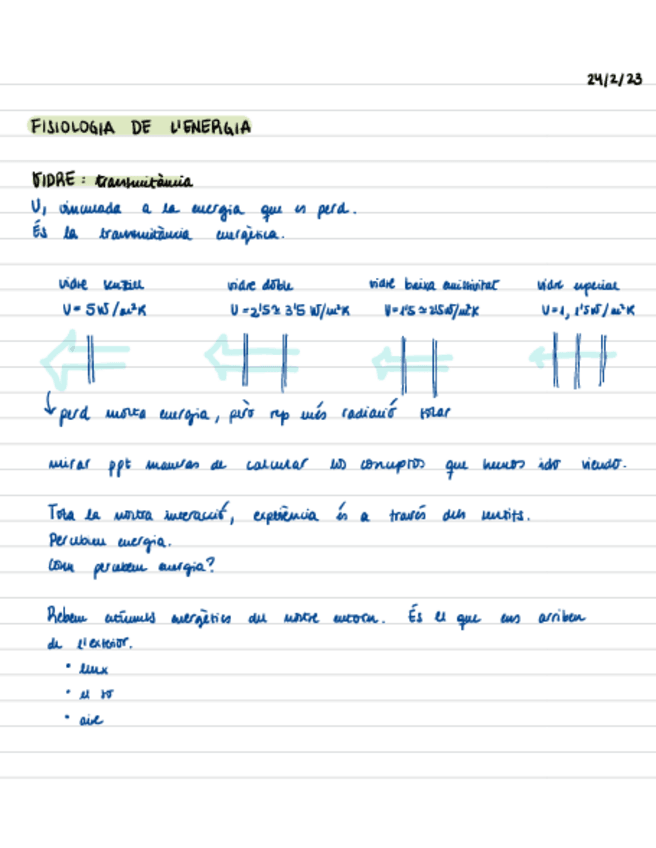 24/2/23
FISIOLOGIA DE L'ENERGIA
VIDRE: transmitància
U, vinculada a la energia que es perd.
És la transmitància energètica.
vidre senzill vidre doble vidre baixa emissivitat vidre especial
U = 5W/m²K U = 2'5 ≃ 3'5 W/m²K U = 1'5 ≃ 2'5W/m²K U = 1, 1'5W/m²K
perd molta energia, però rep més radiació solar
mirar ppt maneras de calcular los conceptos que hemos ido viendo.
Tota la nostra interacció, experiència és a través dels sentits.
Percebem energia.
Com percebem energia?
Rebem estímuls energètics del nostre entorn. És el que ens arriben
de l'exterior.
• llum
• el so
• aire